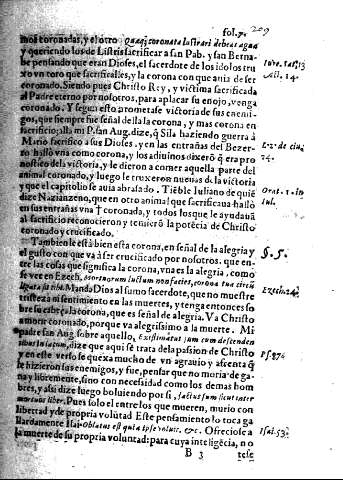 fol. 7. 209
mos coronadas, y el otro Quasi coronata lustrari debeat agna
y queriendo los de Listris sacrificar a san Pab. y san Bernabe
pensando que eran Dioses, el sacerdote de los idolos truxo
vn toro que sacrificalles, y la corona con que auia de ser
coronado. Siendo pues Christo Rey, y victima sacrificada
al Padre eterno por nosotros, para aplacar su enojo, venga
coronado. Y seguro esto prometase victoria de sus enemigos,
que siempre fue señal della la corona, y mas corona en
sacrificio; alla mi P. san Aug. dize, q̃ Sila haziendo guerra à
Mario sacrifico a sus Dioses, y en las entrañas del Bezerro
hallò vna como corona, y los adiuinos dixerõ q̃ era pronostico
de la victoria, y le dieron a comer aquella parte del
animal coronado, y luego le truxeron nueuas de la victoria
y que el capitolio se auia abrasado. Tiẽble Iuliano de quiẽ
dize Nazianzeno, que en otro animal que sacrificaua hallò
en sus entrañas vna † coronada, y todos los que le ayudauã
al sacrificio reconocieron y temierõ la potẽcia de Christo
coronado y crucificado.
Tambien le està bien esta corona, en señal de la alegria y
el gusto con que va à ser crucificado por nosotros. que entre
las cosas que significa la corona, vna es la alegria, como
se vee en Ezech. mortuorum luctum non facies, corona tua circũ
ligata sit tibi. Manda Dios al sumo sacerdote, que no muestre
tristeza ni sentimiento en las muertes, y tenga entonces sobre
su cabeça la corona, que es señal de alegria. Va Christo
a morir coronado, porque va alegrissimo a la muerte. Mi
padre san Aug. sobre aquello, Existimatus sum cum descendentibus
in lacum, dize que aqui se trata de la passion de Christo
y en este verso se quexa mucho de vn agrauio y afrenta q̃
le hizieron sus enemigos, y fue, pensar que no moria de gana
y libremente, sino con necesidad como los demas hombres,
y assi dize luego boluiendo por si, factus sum sicut inter
mortuos liber. Pues solo el entre los que mueren, murio con
libertad y de propria volũtad. Este pensamiento lo toca gallardamente
Isai. Oblatus est quia ipse voluit. &c. Ofreciole a
la muerte de su propria voluntad: para cuya inteligẽcia, no
B 3 tese
Act. 14.
24.
Iul.
§. 5.
Ezech. 24.
Ps. 87.
Isai. 53.